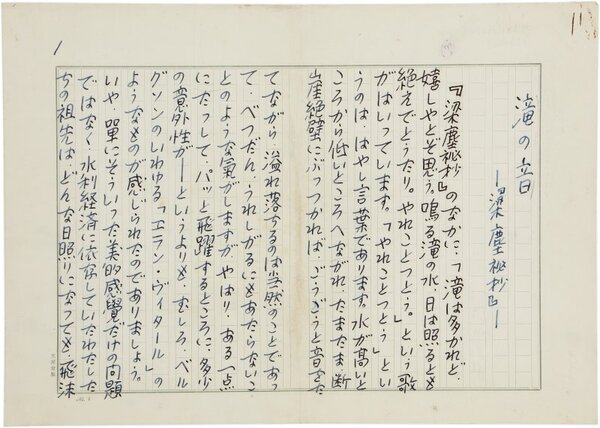 1
滝の音
―『梁塵秘抄』―
『梁塵秘抄』のなかに、「滝は多かれど、
嬉しやとぞ思う。鳴る滝の水 日は照るとも
絶えでとうたり。やれことつとう。」という歌
がはいっています。「やれことつとう」とい
うのは、はやし言葉であります。水が高いと
ころから低いところへながれ、たまたま断
崖絶壁にぶつつかれば、ごうごうと音をた
てながら、溢れ落ちるのは当然のことであっ
て、べつだん、うれしがるにもあたらないこ
とのような気がしますが、やはり、ある一点
にたっして、パッと飛躍するところに、多少
の意外性が――というよりも、むしろ、ベル
グソンのいわゆる「エラン・ヴィタール」の
ようなものが感じられたのでありましょう。
いや、単にそういった美的感覚だけの問題
ではなく、水利経済に依存していたわたした
ちの祖先は、どんな日照りになっても、飛沫